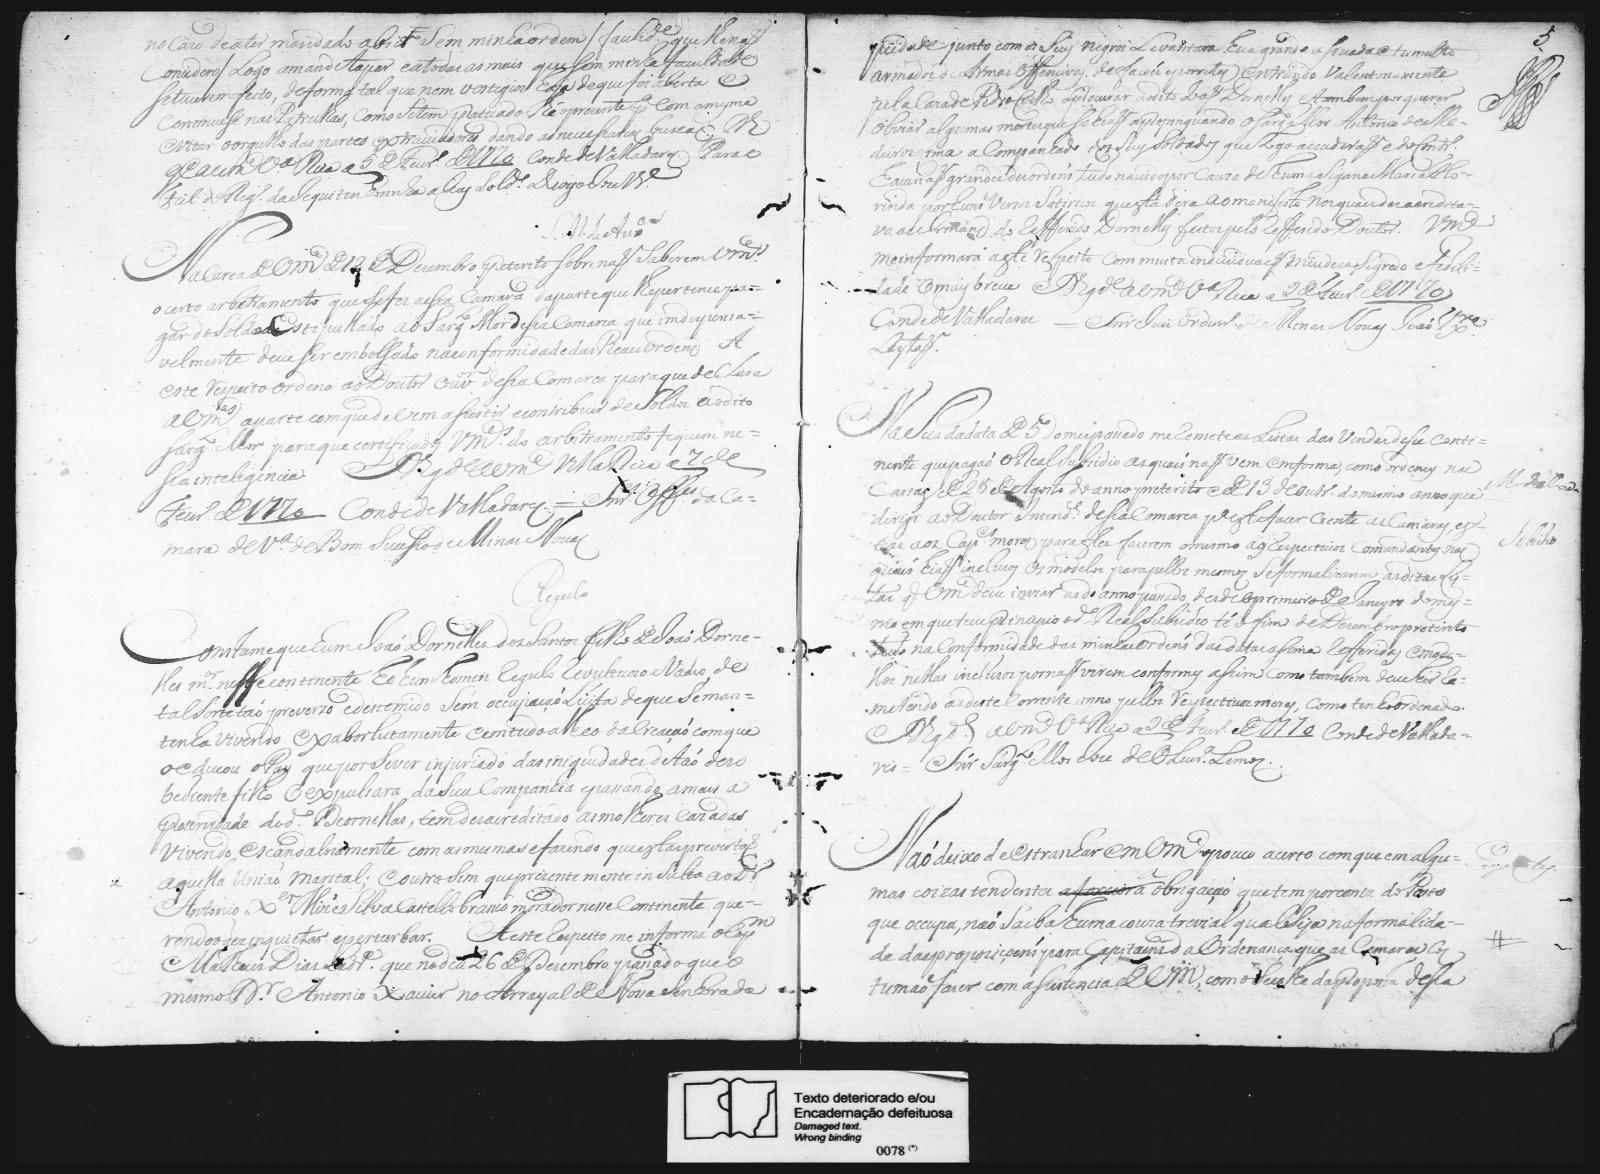 no cazo de ater mandado abrir Sem minha ordem / faculd.e que Ihe naõ
Conudero / Logo amande tapar eatodas as mais que sem minha faculdade
setiverem feito, deforma tal que nem vestigios haja de que foi aberta e
Continue nas Patrulhas, como setem praticado the oprezente p.a com amesma
evitar o orgulho das partes extraviadores dando as necessarias buscas. D.s
g.e a vm.ce V.a Rica a 5 de Fevr.o de 1770 Conde de Valladares Para o
Fiel do Reg.o da
S. M. de Avizo
Na Carta de Vm.ces de 12 de Dezembro preterito sobre naõ Saberem Vm.ces
o certo arbitramento que se fez a essa Camara da parte que lhe pertence pa=
gar do Soldo Estipullado ao Sarg.to Mor dessa Comarca que indispensa=
velmente deve ser embolssado na conformidade das Reaes Ordens A
este respeito ordeno ao Doutor Ouv.or dessa Comarca para que declare
a Vm.ces aparte com que devem assistir e contribuir de Soldo ao dito
Sarg.to Mor para que certificados Vm.ces do arbitramento fiquem ne=
sta inteligencia D.s g.de a Vm.ces Villa Rica a 7 de
Fevr.o de 1770 Conde de Valladares = Snr.es Off.es da Ca=
mara de V.a de Bom Sucesso de Minas Novas
Regulo
Consta me que hum Joaõ Dornellas dos Santos filho de Joaõ Dorne=
llas m.or nesse continente he hum homem Regulo Revultuozo e Vadio, de
tal Sorte taõ preverço e destemido Sem occupaçaõ Licita de que Se man=
tenha vivendo exabsorlutamente em tudo alheo da Creaçaõ com que
o educou o Pay que por Se ver injuriado das iniquidades de taõ dezo
bediente filho o expulsara da Sua Companhia epassando a mais a
proterviade do d.o Dornellas, tem desacreditado as molheres cazadas
vivendo escandalozamente com as mesmas e fazendo que estas prevertaõ
aquella Uniaõ marital; e outro Sim que prezentemente insulta ao D.or
Antonio X.er Alvi e Silva Castellobranco morador nesse Continente que=
rendoo inquietar eperturbar. A este respeito me informa o Cap.m
Mathias Dias que no dia 26 de Dezembro passado que o
mesmo D.r Antonio Xavier no Arrayal de Nossa Senhora da
5
piidade junto com os Seus negros Levantara hua grande assuada e tumulto
armados de Armas offencivas, de facas e porretes entrando valentomente
pela Caza de Pedro Coelho aprocurar ao dito Dornellas e tambem por querer
obviar algumas mortes que sefariaõ aprepinquando o Sarg.to Mor Antonio de Me=
deiros com a Companhia dos Seus Soldados que logo accudiraõ e de contr.o
haviriaõ grandes dezordens tudo nascido por Cauza de huma Sigana Maria Flo=
rinda por huns versos Satiricos que esta dera ao manifesto nos quaes desacredita=
va a do Refferido Dornellas feitos pelo Refferido Doutor. Vm.ce
me informará a este respeito com muita individuaçaõ miudeza, Segredo e Fedeli=
dade e comuy breve D.s g.e a Vm.ce V.a Rica a 2 de Fevr.o de 1770
Conde de Valladares = Snr. Juis Ordin.o de Minas Novas Joaõ
Leytaõ.
Na Sua da data de 5 do mes passado me remete as Listas das Vendas desse Conti=
nente que pagaõ o Real Subsidio as quais naõ vem em forma, como ordeney nas
Cartas de 25 de Agosto do anno preterito e de 13 de outr.o do mesmo anno que
dirigi ao Doutor Intend.e dessa Comarca p.a este fazer Ciente as Camaras es=
tas aos Cap.es mores para estes fazerem o mesmo aos Respectivos Comandantes nas
quais hiaõ incluzos os modelos para pellos mesmos Se formalizarem as ditas Lis=
tas q. Vm.ce deve inviar as do anno passado desde o primeiro de Janeyro do mes=
mo em que teve principio o d.o Real Subsidio té o fim de Dezembro preterito
tudo na Conformidade das minhas ordens das datas assima Refferidas e mode=
llos nellas inclusos por naõ virem conformes assim como tambem deve hir re=
metendo as deste Corrente anno pellos Respectivos mezes, como tenho ordenado.
D.s g.de a Vm.ce V.a Rica a 2 de Fevr.o de 1770 Conde de Vallada=
res = Snr Sarg.to Mor Joze de
Subsidio
Naõ deixo de estranhar em Vm.ce o pouco acerto com que em algu=
mas coizas tendentes a obrigaçaõ que tem por conta do Posto
que occupa, naõ Saiba huma couza trevial qual Seja na formalida=
de das propoziçoens para Capitaens da Ordenança que as Camaras Cos
tumaõ fazer com assistencia de Vm.ce, como Se ve da proposta dessa
#
Texto deteriorado e/ou
Encadernação defeituosa
Damaged text.
Wrong binding
0078 (*)